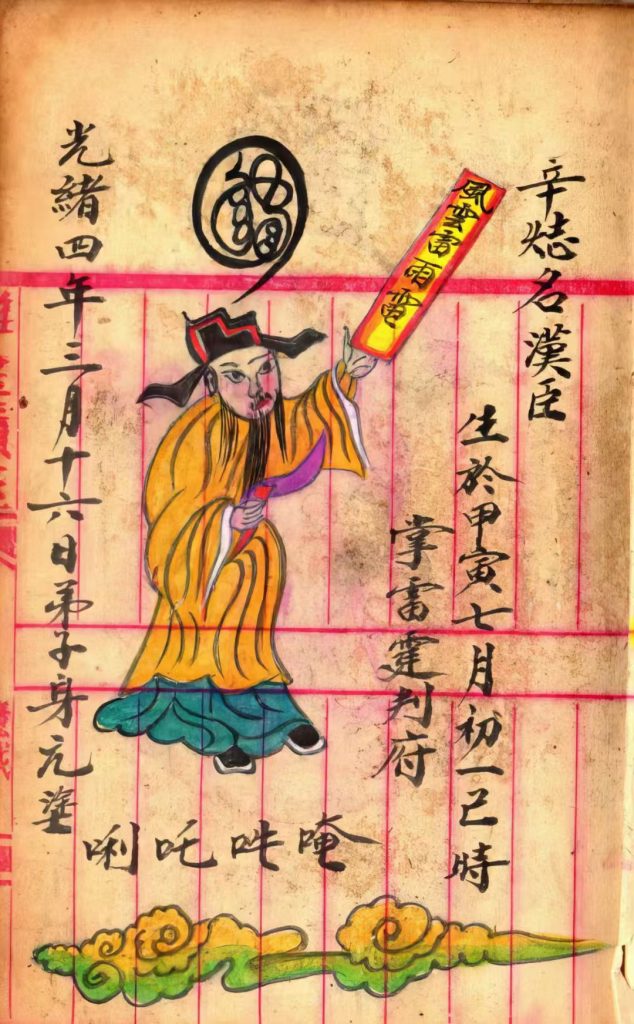 辛㷖名漢臣
生於甲寅七月初一已時
掌雷霆判府
風雲雷雨雷
唵吽吒唎
光緒四年三月十六日弟子身元塗